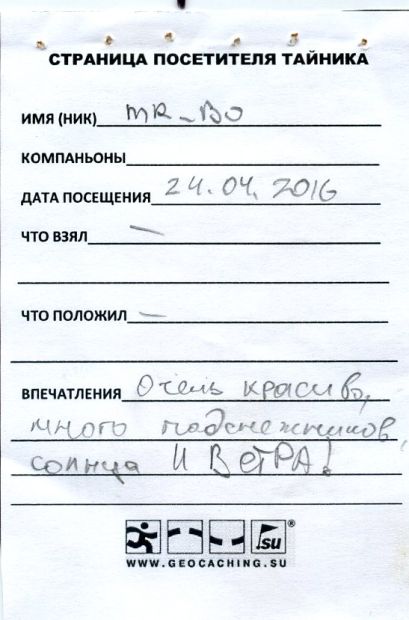 СТРАНИЦА ПОСЕТИТЕЛЯ ТАЙНИКА
ИМЯ (НИК) MR_BO
КОМПАНЬОНЫ
ДАТА ПОСЕЩЕНИЯ 24.04.2016
ЧТО ВЗЯЛ —
ЧТО ПОЛОЖИЛ —
ВПЕЧАТЛЕНИЯ Очень красиво,
много подснежников,
солнца И ВЕТРА!
.su ®
WWW.GEOCACHING.SU